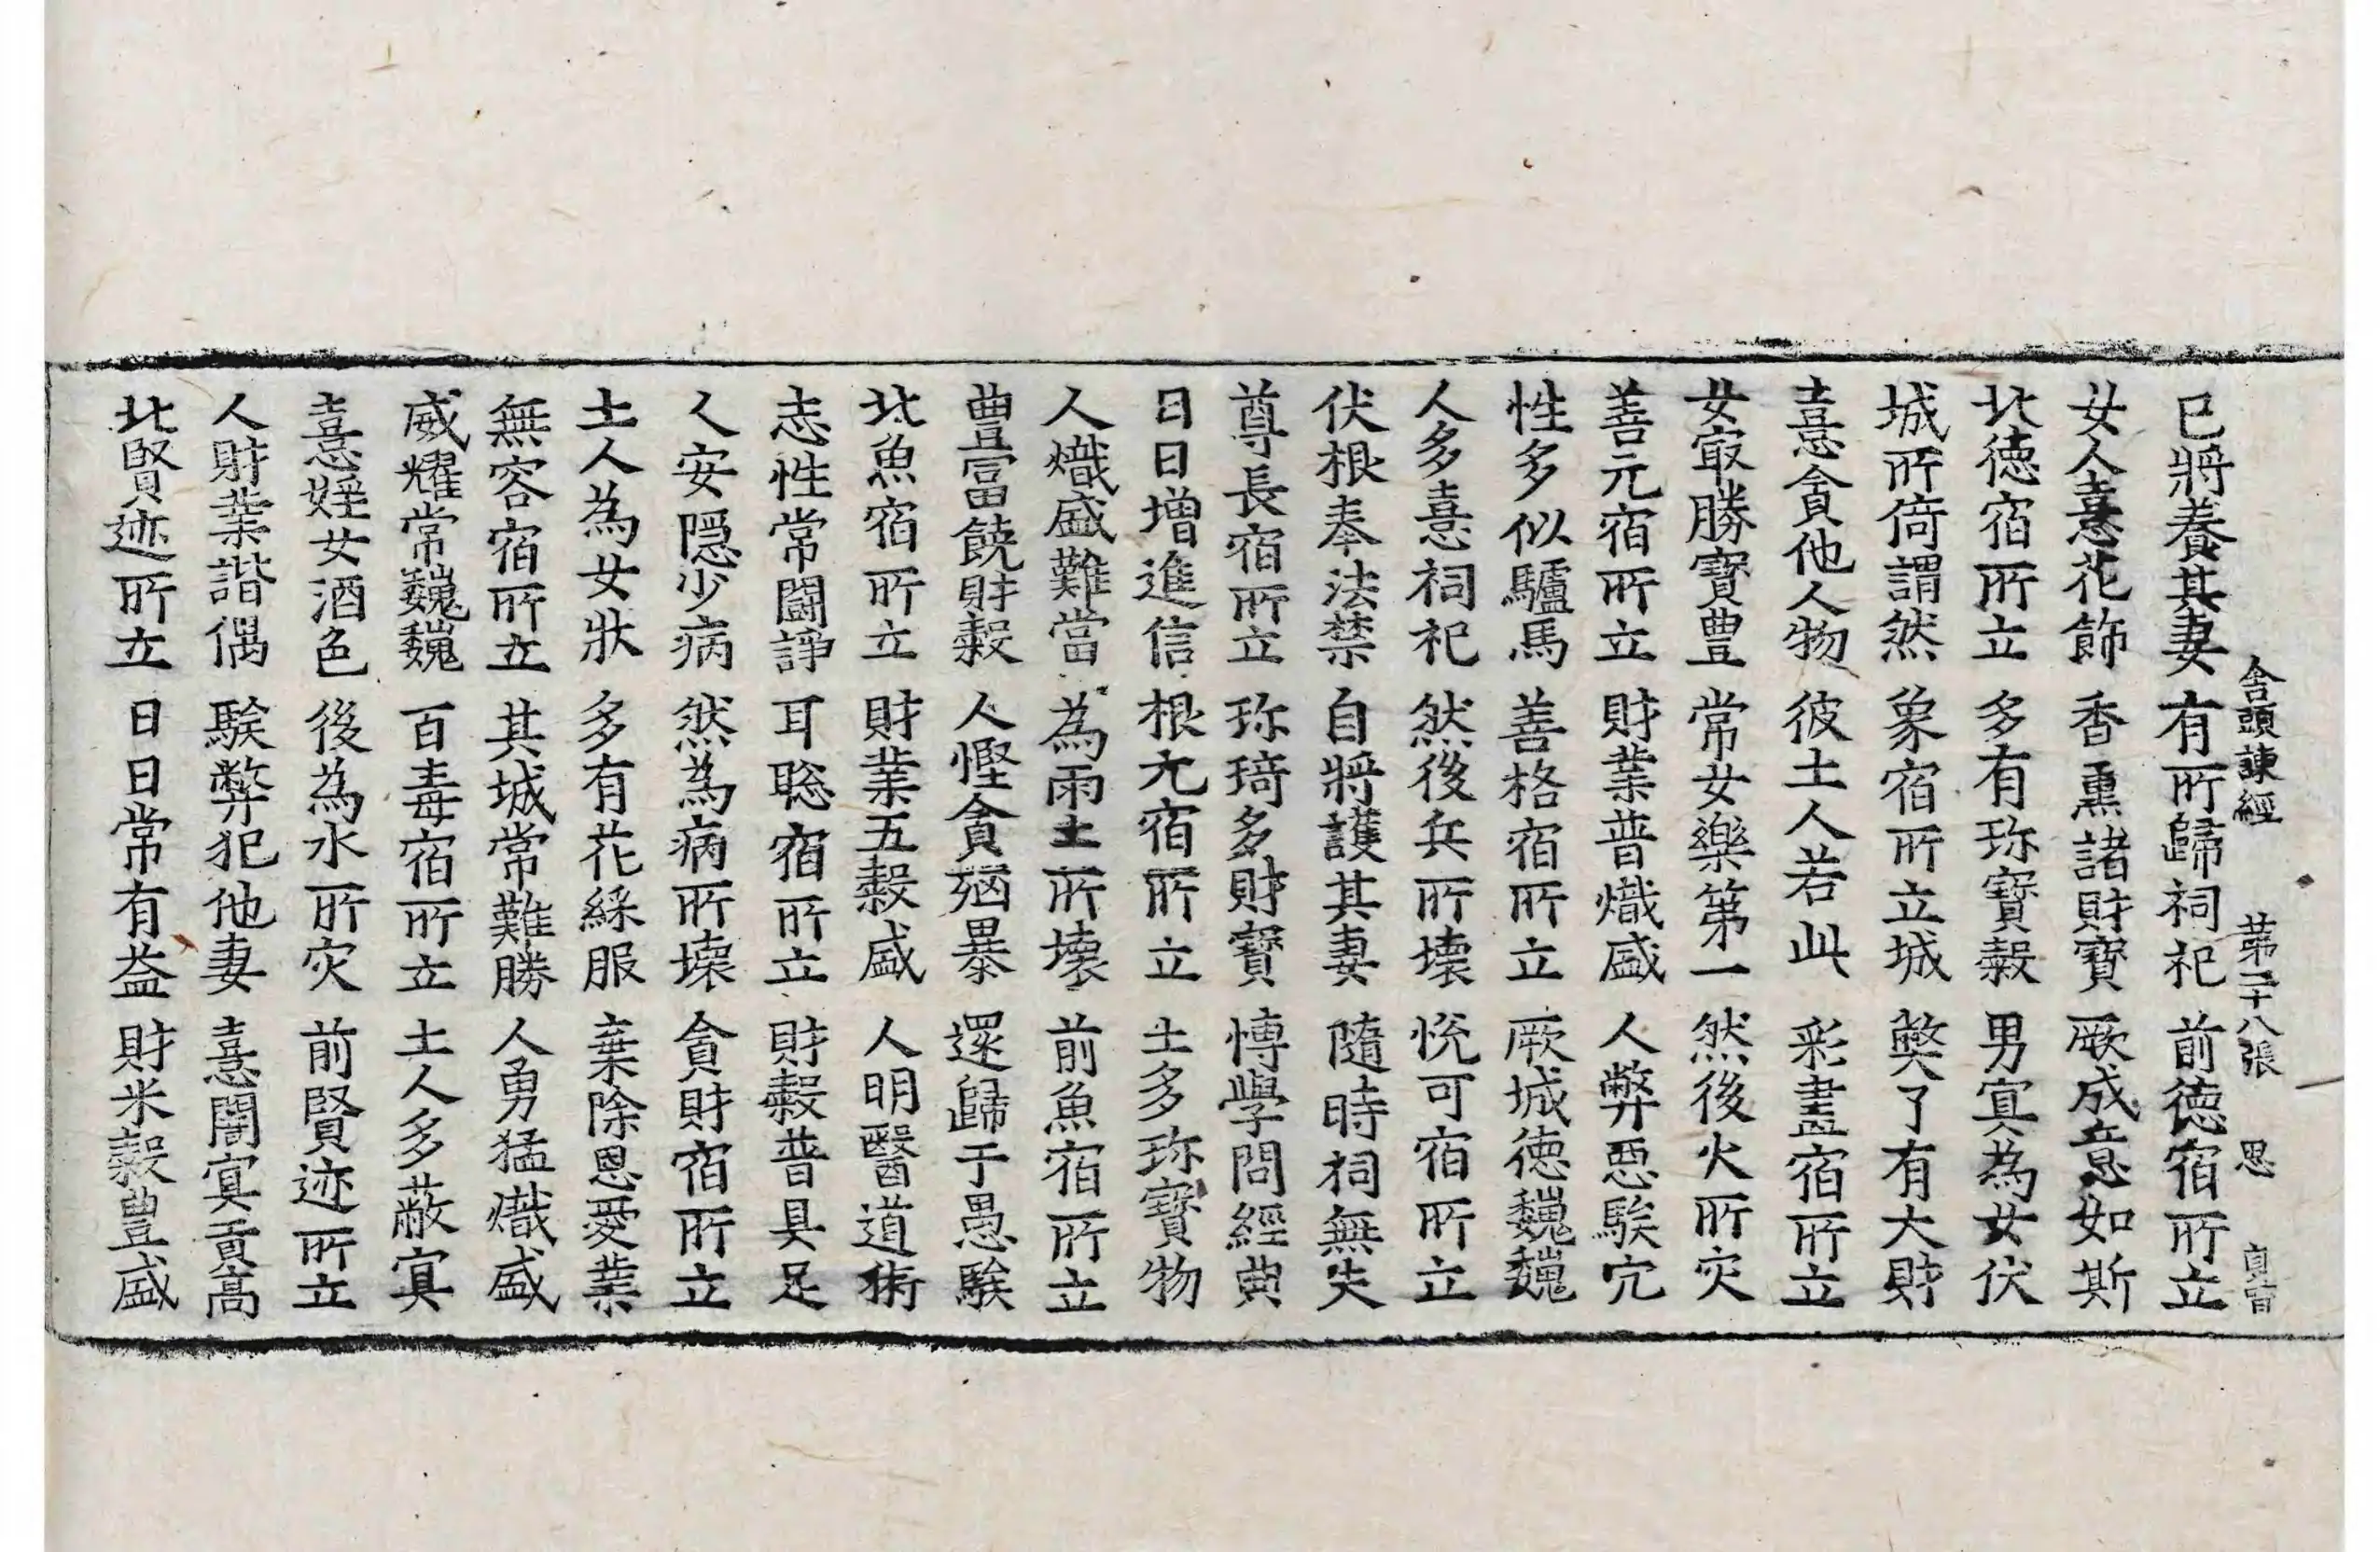 舍頭諫經 第二十八張 思
已將養其妻 有所歸祠祀 前徳宿所立
女人憙花飾 香熏諸財寶 厥成意如斯
北徳宿所立 多有珎寶穀 男寘為女伏
城所倚謂然 象宿所立城 獘了有大財
憙貪他人物 彼土人若此 彩畫宿所立
女㝡勝寶豊 常女樂第一 然後火所灾
善元宿所立 財業普熾盛 人弊惡騃宂
性多似驢馬 善格宿所立 厥城徳巍巍
人多憙祠祀 然後兵所壞 恱可宿所立
伏根奉法禁 自將護其妻 隨時祠無失
尊長宿所立 珎琦多財寶 愽學問經典
日日增進信 根元宿所立 土多珎寶物
人熾盛難當 為雨土所壞 前魚宿所立
豊富饒財穀 人慳貪㐫暴 還歸于愚騃
北魚宿所立 財業五穀盛 人明醫道術
志性常鬪諍 耳聡宿所立 財穀普具足
人安隠少病 然為病所壞 貪財宿所立
土人為女狀 多有花綵服 棄除恩愛業
無容宿所立 其城常難勝 人勇猛熾盛
威耀常巍巍 百毒宿所立 土人多蔽寘
憙婬女酒色 後為水所灾 前賢迹所立
人財業諧偶 騃弊犯他妻 憙閙寘貢高
北賢迹所立 日日常有益 財米穀豊盛